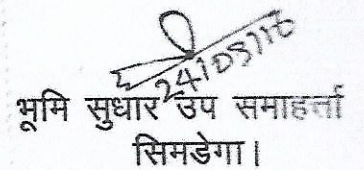 24/03/18
भूमि सुधार उप समाहर्त्ता
सिमडेगा।